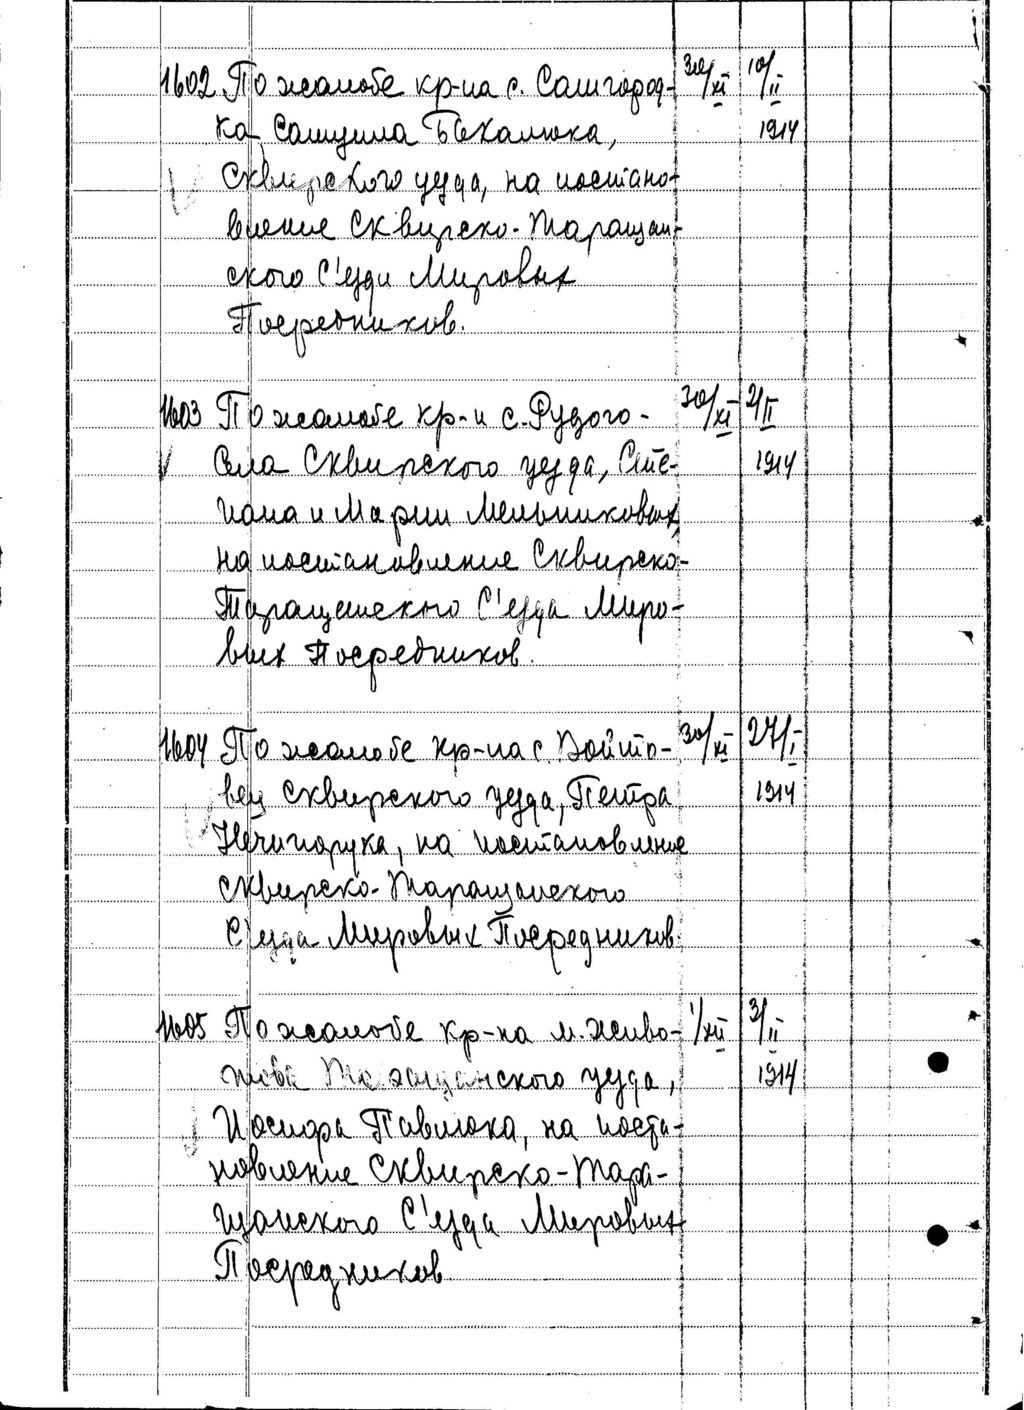 1602 По жалобе кр-на с. Самгород- 30/XI 10/II
ка, Самуила Бекалюка, 1914
Сквирского уезда, на постано-
вление Сквирско-Таращан-
ского С'езда Мировых
Посредников.
1603 По жалобе кр-н с. Рудого- 30/XI 2/II
Села Сквирского уезда, Сте- 1914
пана и Марии Мельниковых,
на постановление Сквирско-
Таращанского С'езда Миро-
вых Посредников.
1604 По жалобе кр-на с. Войто- 30/XI 27/I
вец Сквирского уезда, Петра 1914
Нечипорука, на постановление
Сквирско-Таращанского
С'езда Мировых Посредников.
1605 По жалобе кр-на м. Живо- 1/XII 3/II
това Таращанского уезда, 1914
Иосифа Павлюка, на поста-
новление Сквирско-Тара-
щанского С'езда Мировых
Посредников